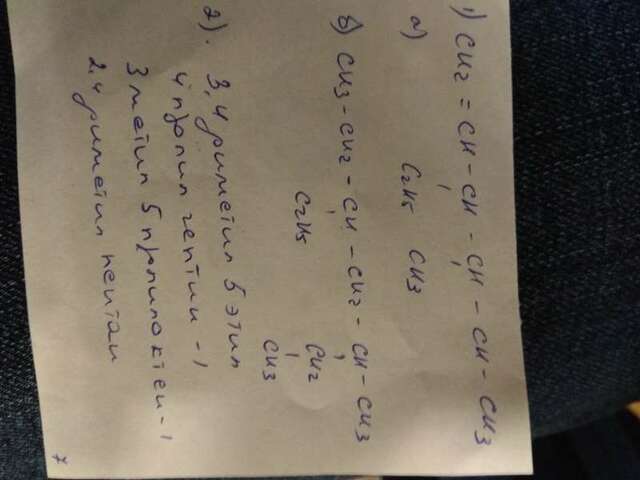 1) CH2 = CH - CH - CH - CH - CH3
а) C2H5 CH3
б) CH3 - CH2 - CH - CH2 - CH - CH3
C2H5 CH2
CH3
2). 3,4 диметил 5 этил
4 пропил гептин - 1
3 метил 5 пропилоктен - 1
2,4 диметил пентан
7